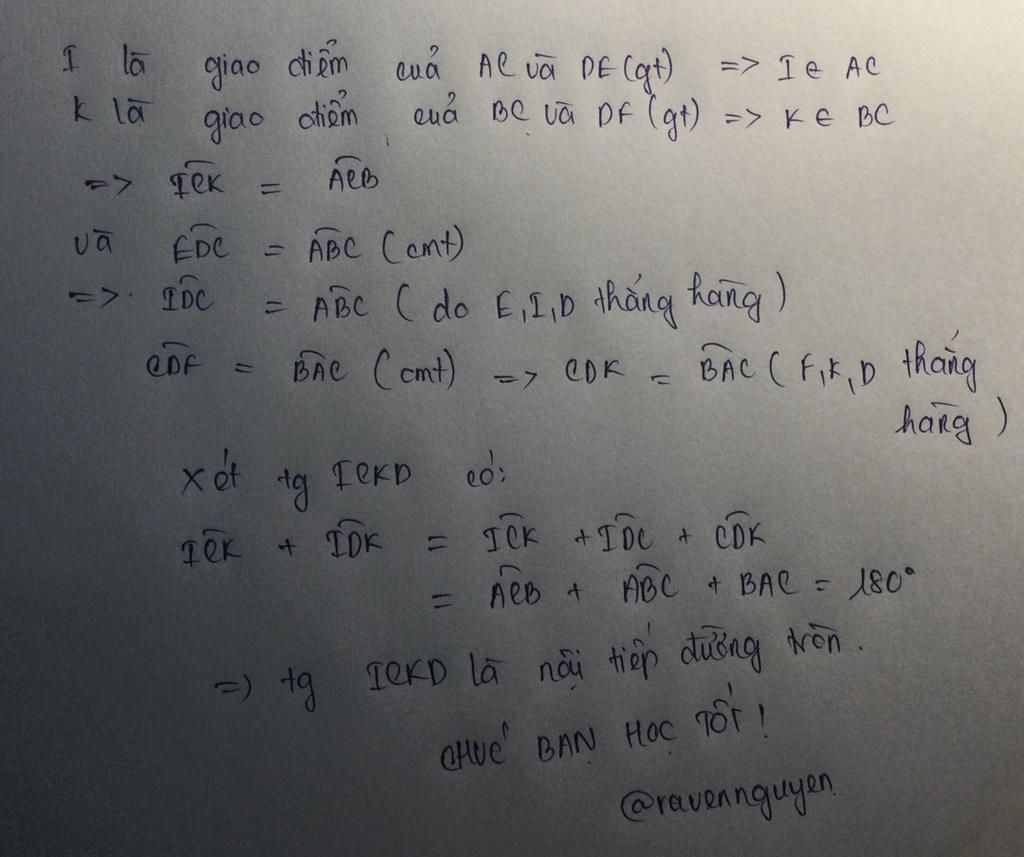 I là giao điểm của AC và DE (gt) => I ∈ AC
K là giao điểm của BC và DF (gt) => K ∈ BC
=> ICK = ACB
và EDC = ABC (cmt)
=> IDC = ABC (do E, I, D thẳng hàng)
CDF = BAC (cmt) => CDK = BAC (F, K, D thẳng
hàng)
Xét tg ICKD có:
ICK + IDK = ICK + IDC + CDK
= ACB + ABC + BAC = 180°
=> tg ICKD là nội tiếp đường tròn.
CHÚC BẠN HỌC TỐT!
@ravennguyen